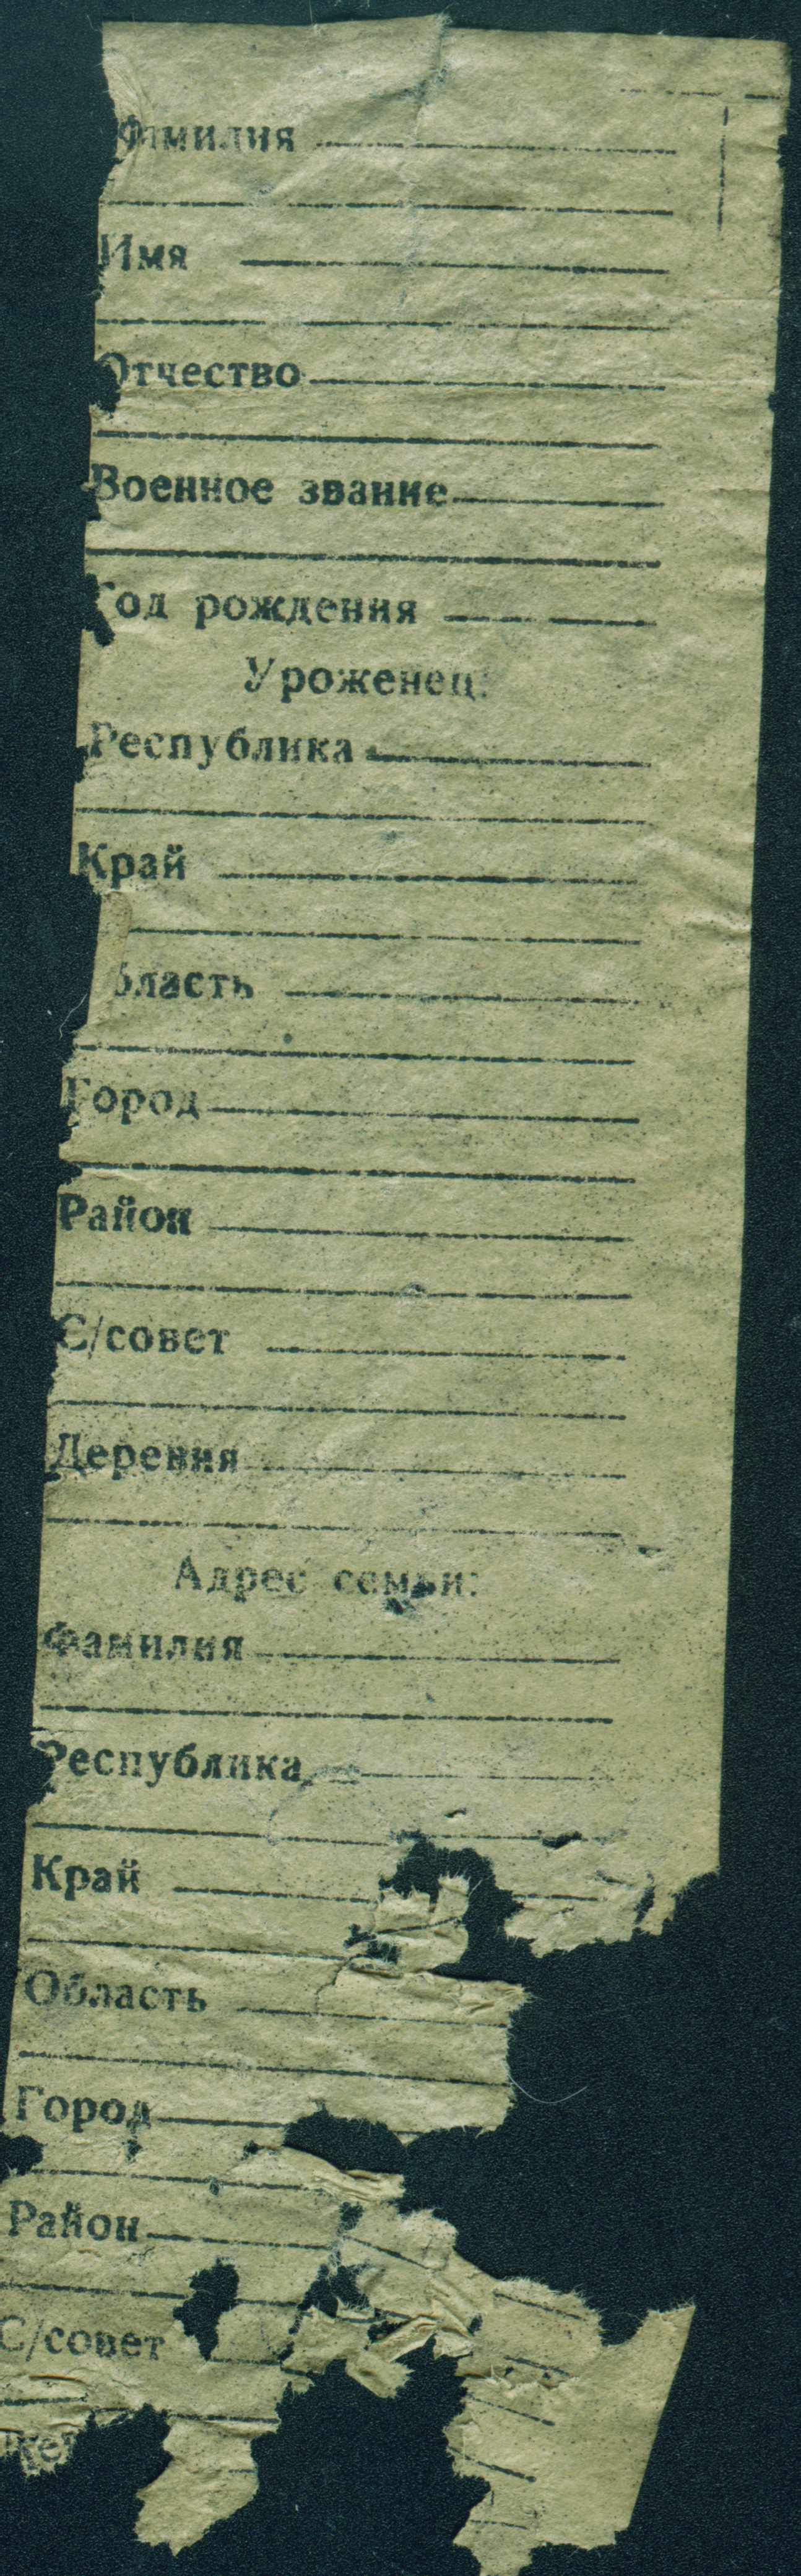 Фамилия
Имя
Отчество
Военное звание
Год рождения
Уроженец:
Республика
Край
бласть
Город
Район
С/совет
Деревня
Адрес семьи:
Фамилия
Республика
Край
Область
Город
Район
С/совет